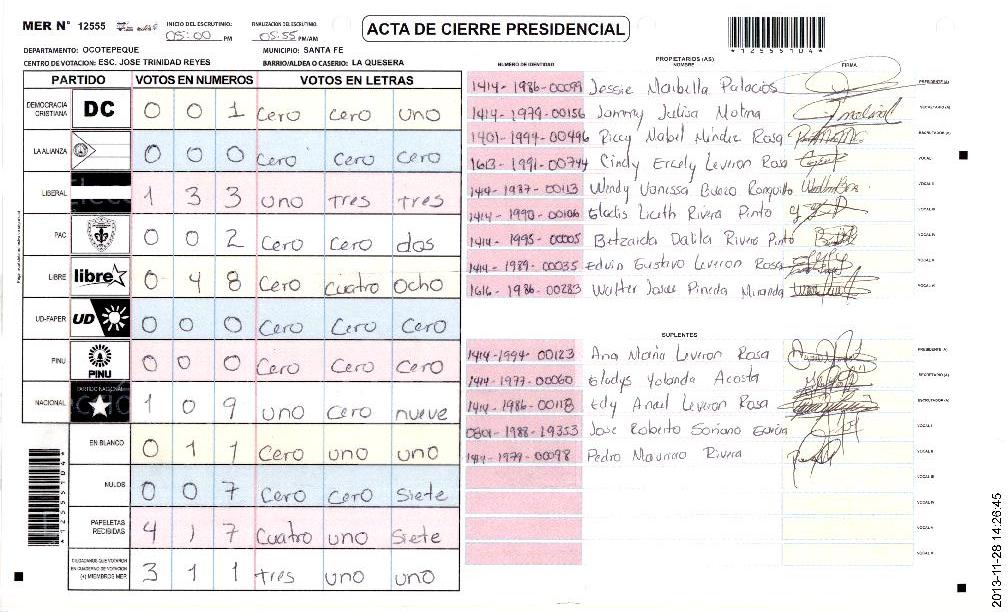 MER N° 12555 INICIO DEL ESCRUTINIO: 05:00 PM FINALIZACION DEL ESCRUTINIO: 05:55 PM/AM ACTA DE CIERRE PRESIDENCIAL *1255510 4*
DEPARTAMENTO: OCOTEPEQUE MUNICIPIO: SANTA FE
CENTRO DE VOTACION: ESC. JOSE TRINIDAD REYES BARRIO/ALDEA O CASERIO: LA QUESERA
PARTIDO VOTOS EN NUMEROS VOTOS EN LETRAS
DEMOCRACIA CRISTIANA DC 0 0 1 cero cero uno
LA ALIANZA 0 0 0 cero cero cero
LIBERAL 1 3 3 uno tres tres
PAC 0 0 2 cero cero dos
LIBRE libre 0 4 8 cero cuatro ocho
UD-FAPER UD 0 0 0 cero cero cero
PINU PINU 0 0 0 cero cero cero
NACIONAL PARTIDO NACIONAL 1 0 9 uno cero nueve
EN BLANCO 0 1 1 cero uno uno
NULOS 0 0 7 cero cero siete
PAPELETAS RECIBIDAS 4 1 7 cuatro uno siete
CIUDADANOS QUE VOTARON EN CUADERNO DE VOTACION (+) MIEMBROS MER 3 1 1 tres uno uno
PROPIETARIOS (AS)
NUMERO DE IDENTIDAD NOMBRE FIRMA
1414-1986-00099 Jessie Maibella Palacios PRESIDENTE (A)
1414-1979-00156 Jammy Julisa Molina SECRETARIO (A)
1401-1994-00496 Riccy Mabel Mendez Rosa ESCRUTADOR (A)
1613-1991-00744 Cindy Ercely Leveron Rosa VOCAL I
1414-1987-00113 Wendy Vanessa Bueso Ronquillo VOCAL II
1414-1990-00106 Gladis Liceth Rivera Pinto VOCAL III
1414-1995-00005 Betzaida Dalila Rivera Pinto VOCAL IV
1414-1989-00035 Edvin Gustavo Leveron Rosa VOCAL V
1616-1986-00283 Walter Josue Pineda Miranda VOCAL VI
SUPLENTES
1414-1994-00123 Ana Maria Leveron Rosa PRESIDENTE (A)
1414-1977-00060 Gladys Yolanda Acosta SECRETARIO (A)
1414-1986-00118 Edy Anael Leveron Rosa ESCRUTADOR (A)
0801-1988-19353 Jose Roberto Soriano Garcia VOCAL I
1414-1979-00098 Pedro Mauricio Rivera VOCAL II
VOCAL III
VOCAL IV
VOCAL V
VOCAL VI
2013-11-28 14:26:45